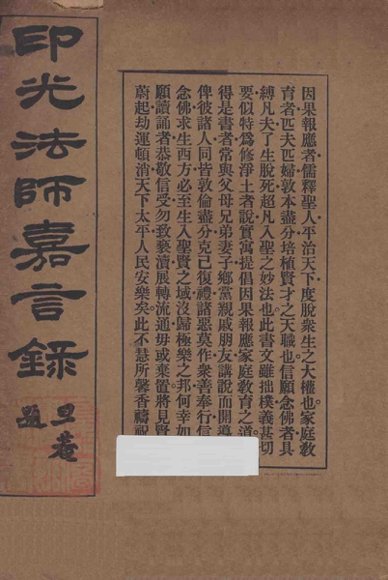 因果報應者儒釋聖人平治天下度脫衆生之大權也家庭教
育者匹夫匹婦敦本盡分培植賢才之天職也信願念佛者具
縛凡夫了生脫死超凡入聖之妙法也此書文雖拙樸義甚切
要似特爲修淨土者說實寓提倡因果報應家庭教育之道
得是書者常與父母兄弟妻子鄉黨親戚朋友講說而開導
俾彼諸人同皆敦倫盡分克己復禮諸惡莫作衆善奉行信
念佛求生西方必至生入聖賢之域沒歸極樂之邦何幸如
願讀誦者恭敬信受勿致褻瀆展轉流通毋或棄置將見賢
蔚起劫運頓消天下太平人民安樂矣此不慧所馨香禱祝
印光法師嘉言錄
旦菴
題